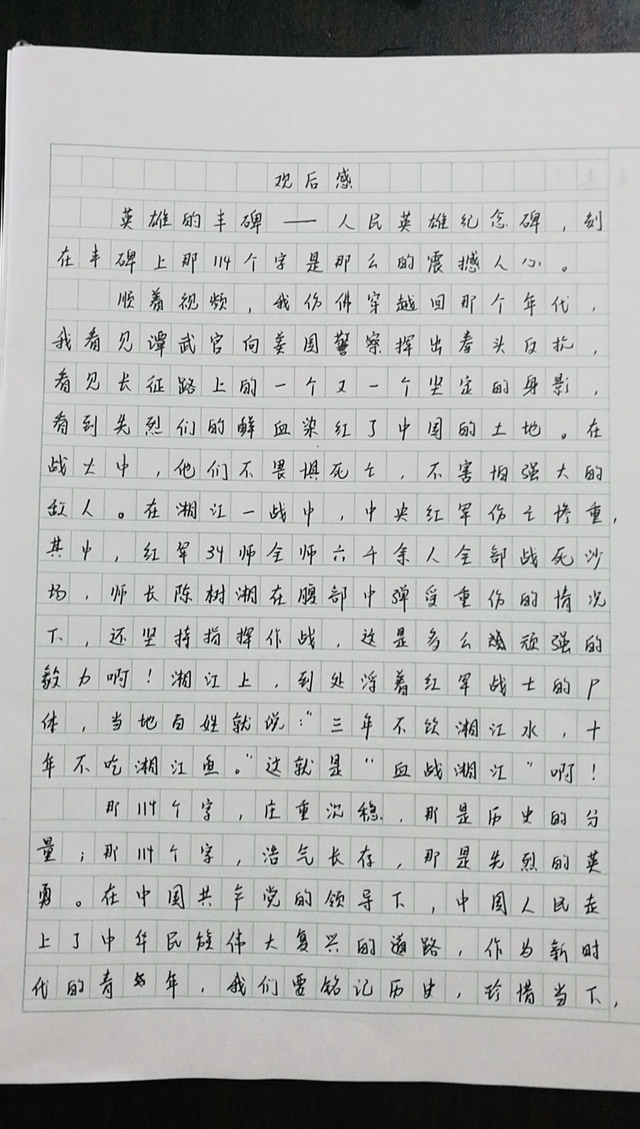 观后感
英雄的丰碑——人民英雄纪念碑，刻
在丰碑上那114个字是那么的震撼人心。
顺着视频，我仿佛穿越回那个年代，
我看见谭武官向美国警察挥出拳头反抗，
看见长征路上的一个又一个坚定的身影，
看到先烈们的鲜血染红了中国的土地。在
战火中，他们不畏惧死亡，不害怕强大的
敌人。在湘江一战中，中央红军伤亡惨重，
其中，红军34师全师六千余人全部战死沙
场，师长陈树湘在腹部中弹受重伤的情况
下，还坚持指挥作战，这是多么顽强的
毅力啊！湘江上，到处浮着红军战士的尸
体，当地百姓就说：“三年不饮湘江水，十
年不吃湘江鱼。”这就是“血战湘江”啊！
那114个字，庄重沉稳，那是历史的分
量；那114个字，浩气长存，那是先烈的英
勇。在中国共产党的领导下，中国人民走
上了中华民族伟大复兴的道路，作为新时
代的青年，我们要铭记历史，珍惜当下，